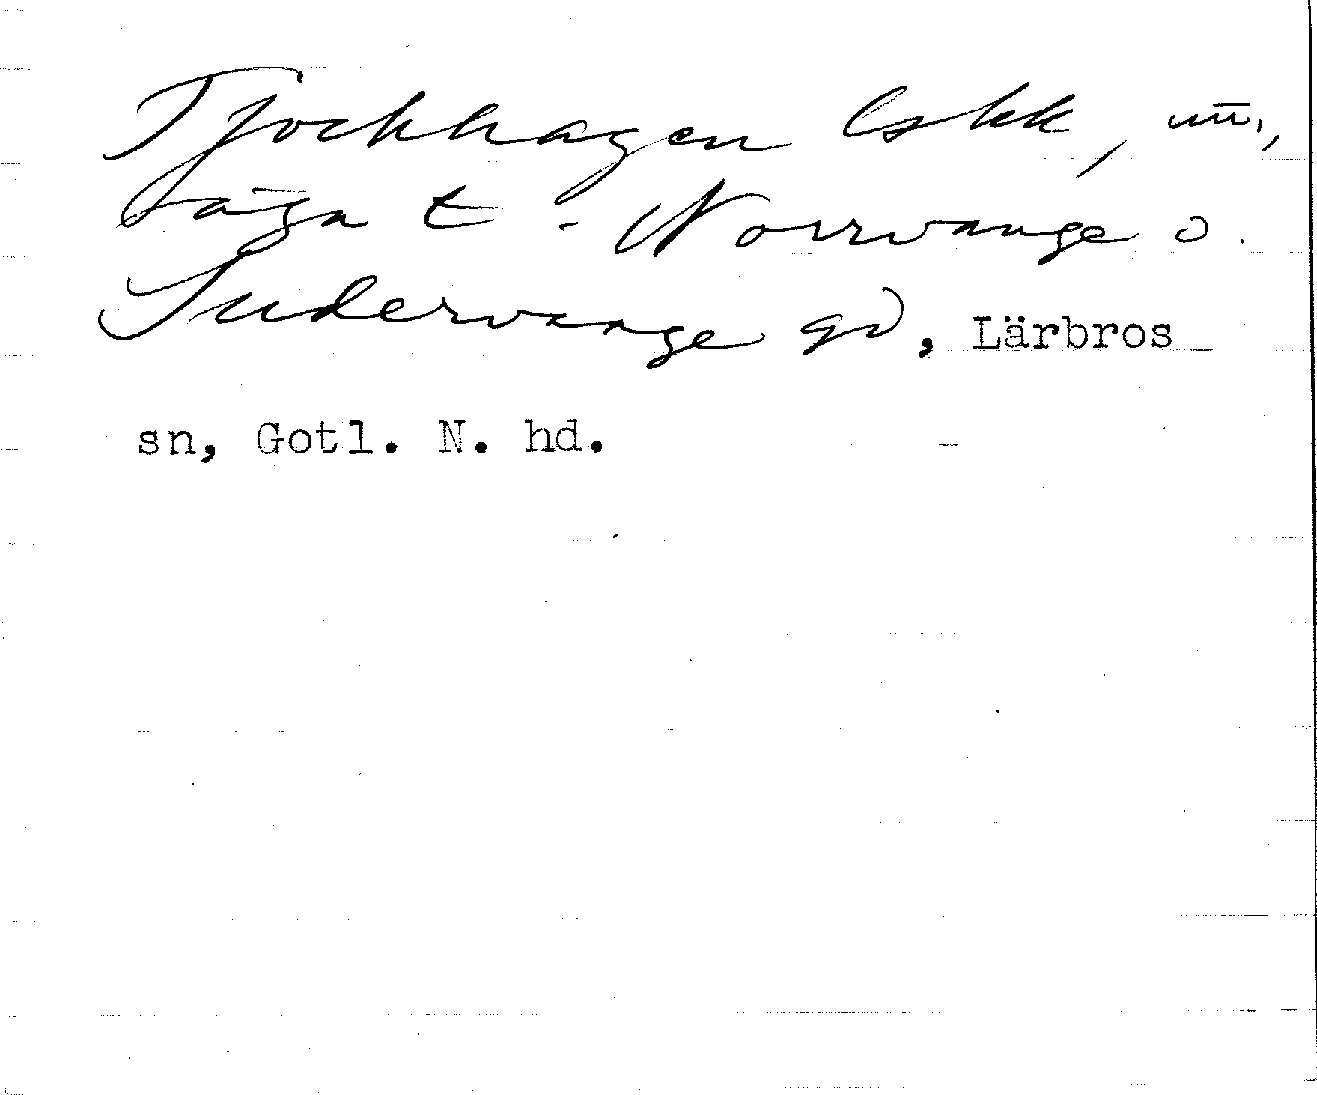 Tjockhagen lskk, m,
äga t. Norrvange o.
Sudervange gd, Lärbros
sn, Gotl. N. hd.